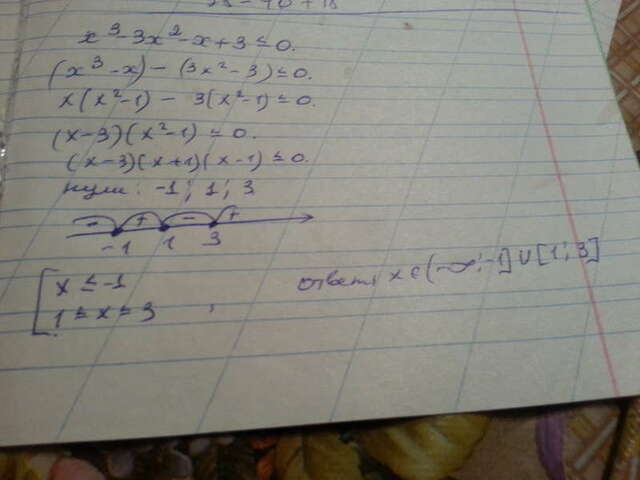 x³-3x²-x+3≤0.
(x³-x)-(3x²-3)≤0.
x(x²-1)-3(x²-1)≤0.
(x-3)(x²-1)≤0.
(x-3)(x+1)(x-1)≤0.
нули: -1; 1; 3
- + - +
-1 1 3
x≤-1
1≤x≤3
ответ: x∈(-∞;-1]∪[1;3]